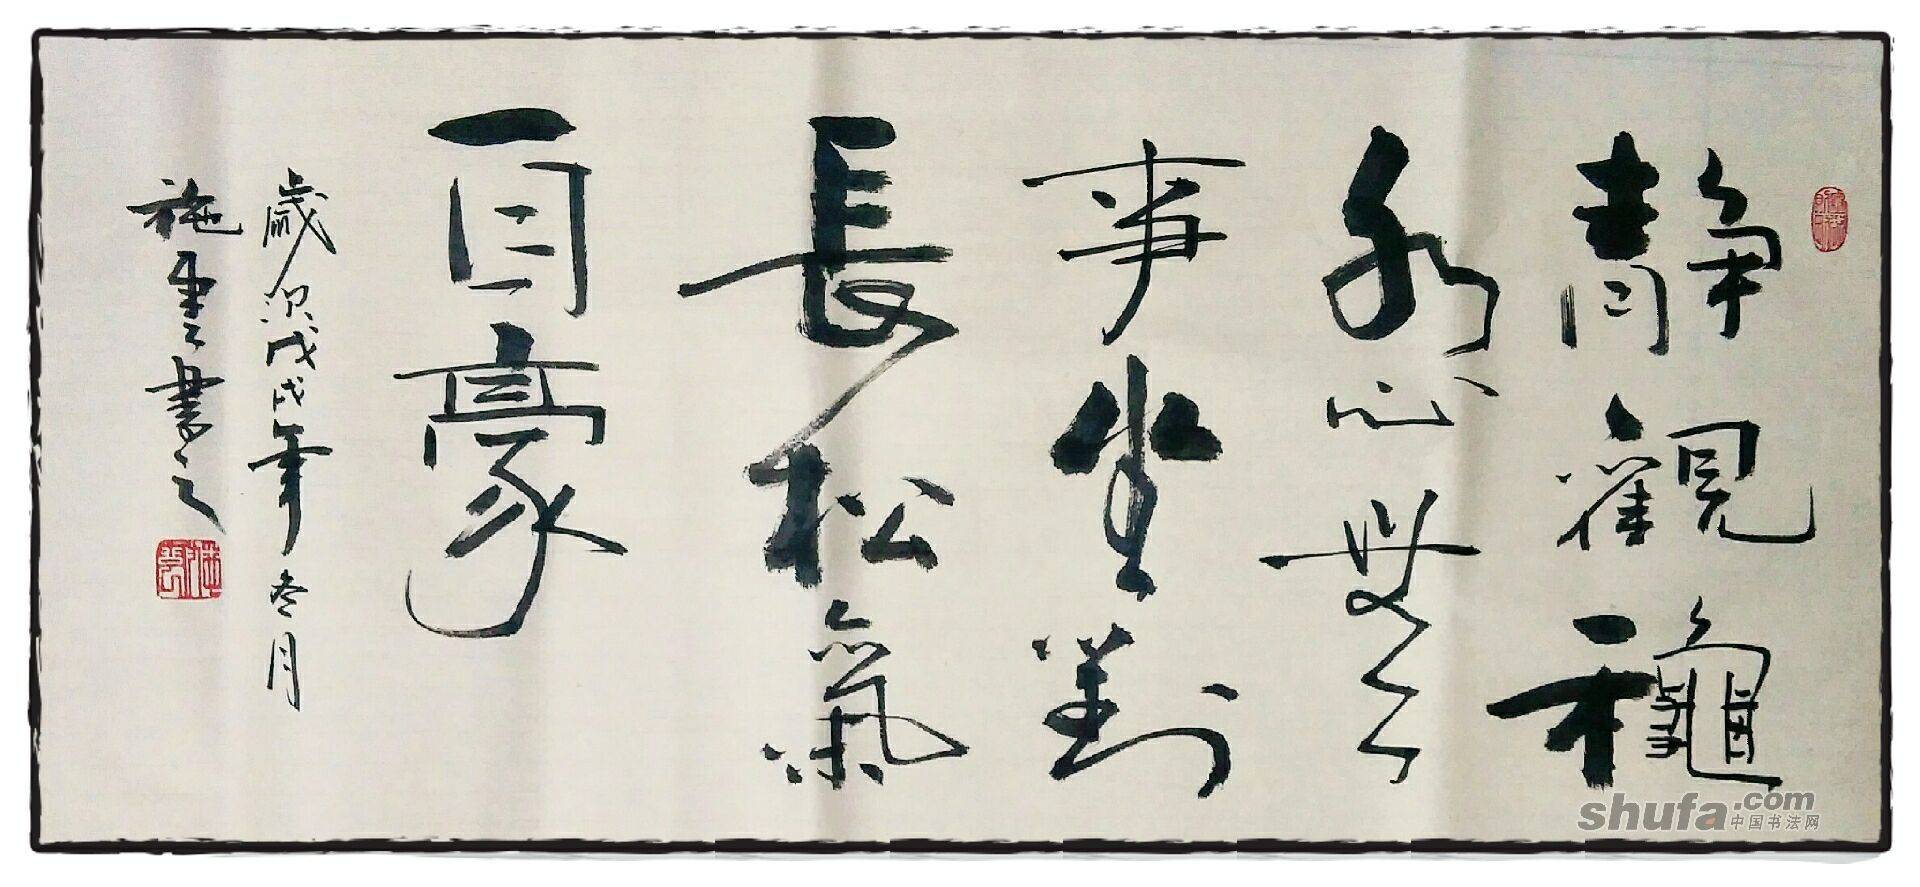 靜觀龝
水心無
事坐對
長松氣
自豪
歲次戊戌年冬月
施雲書之
施雲
shufa.com
中国书法网